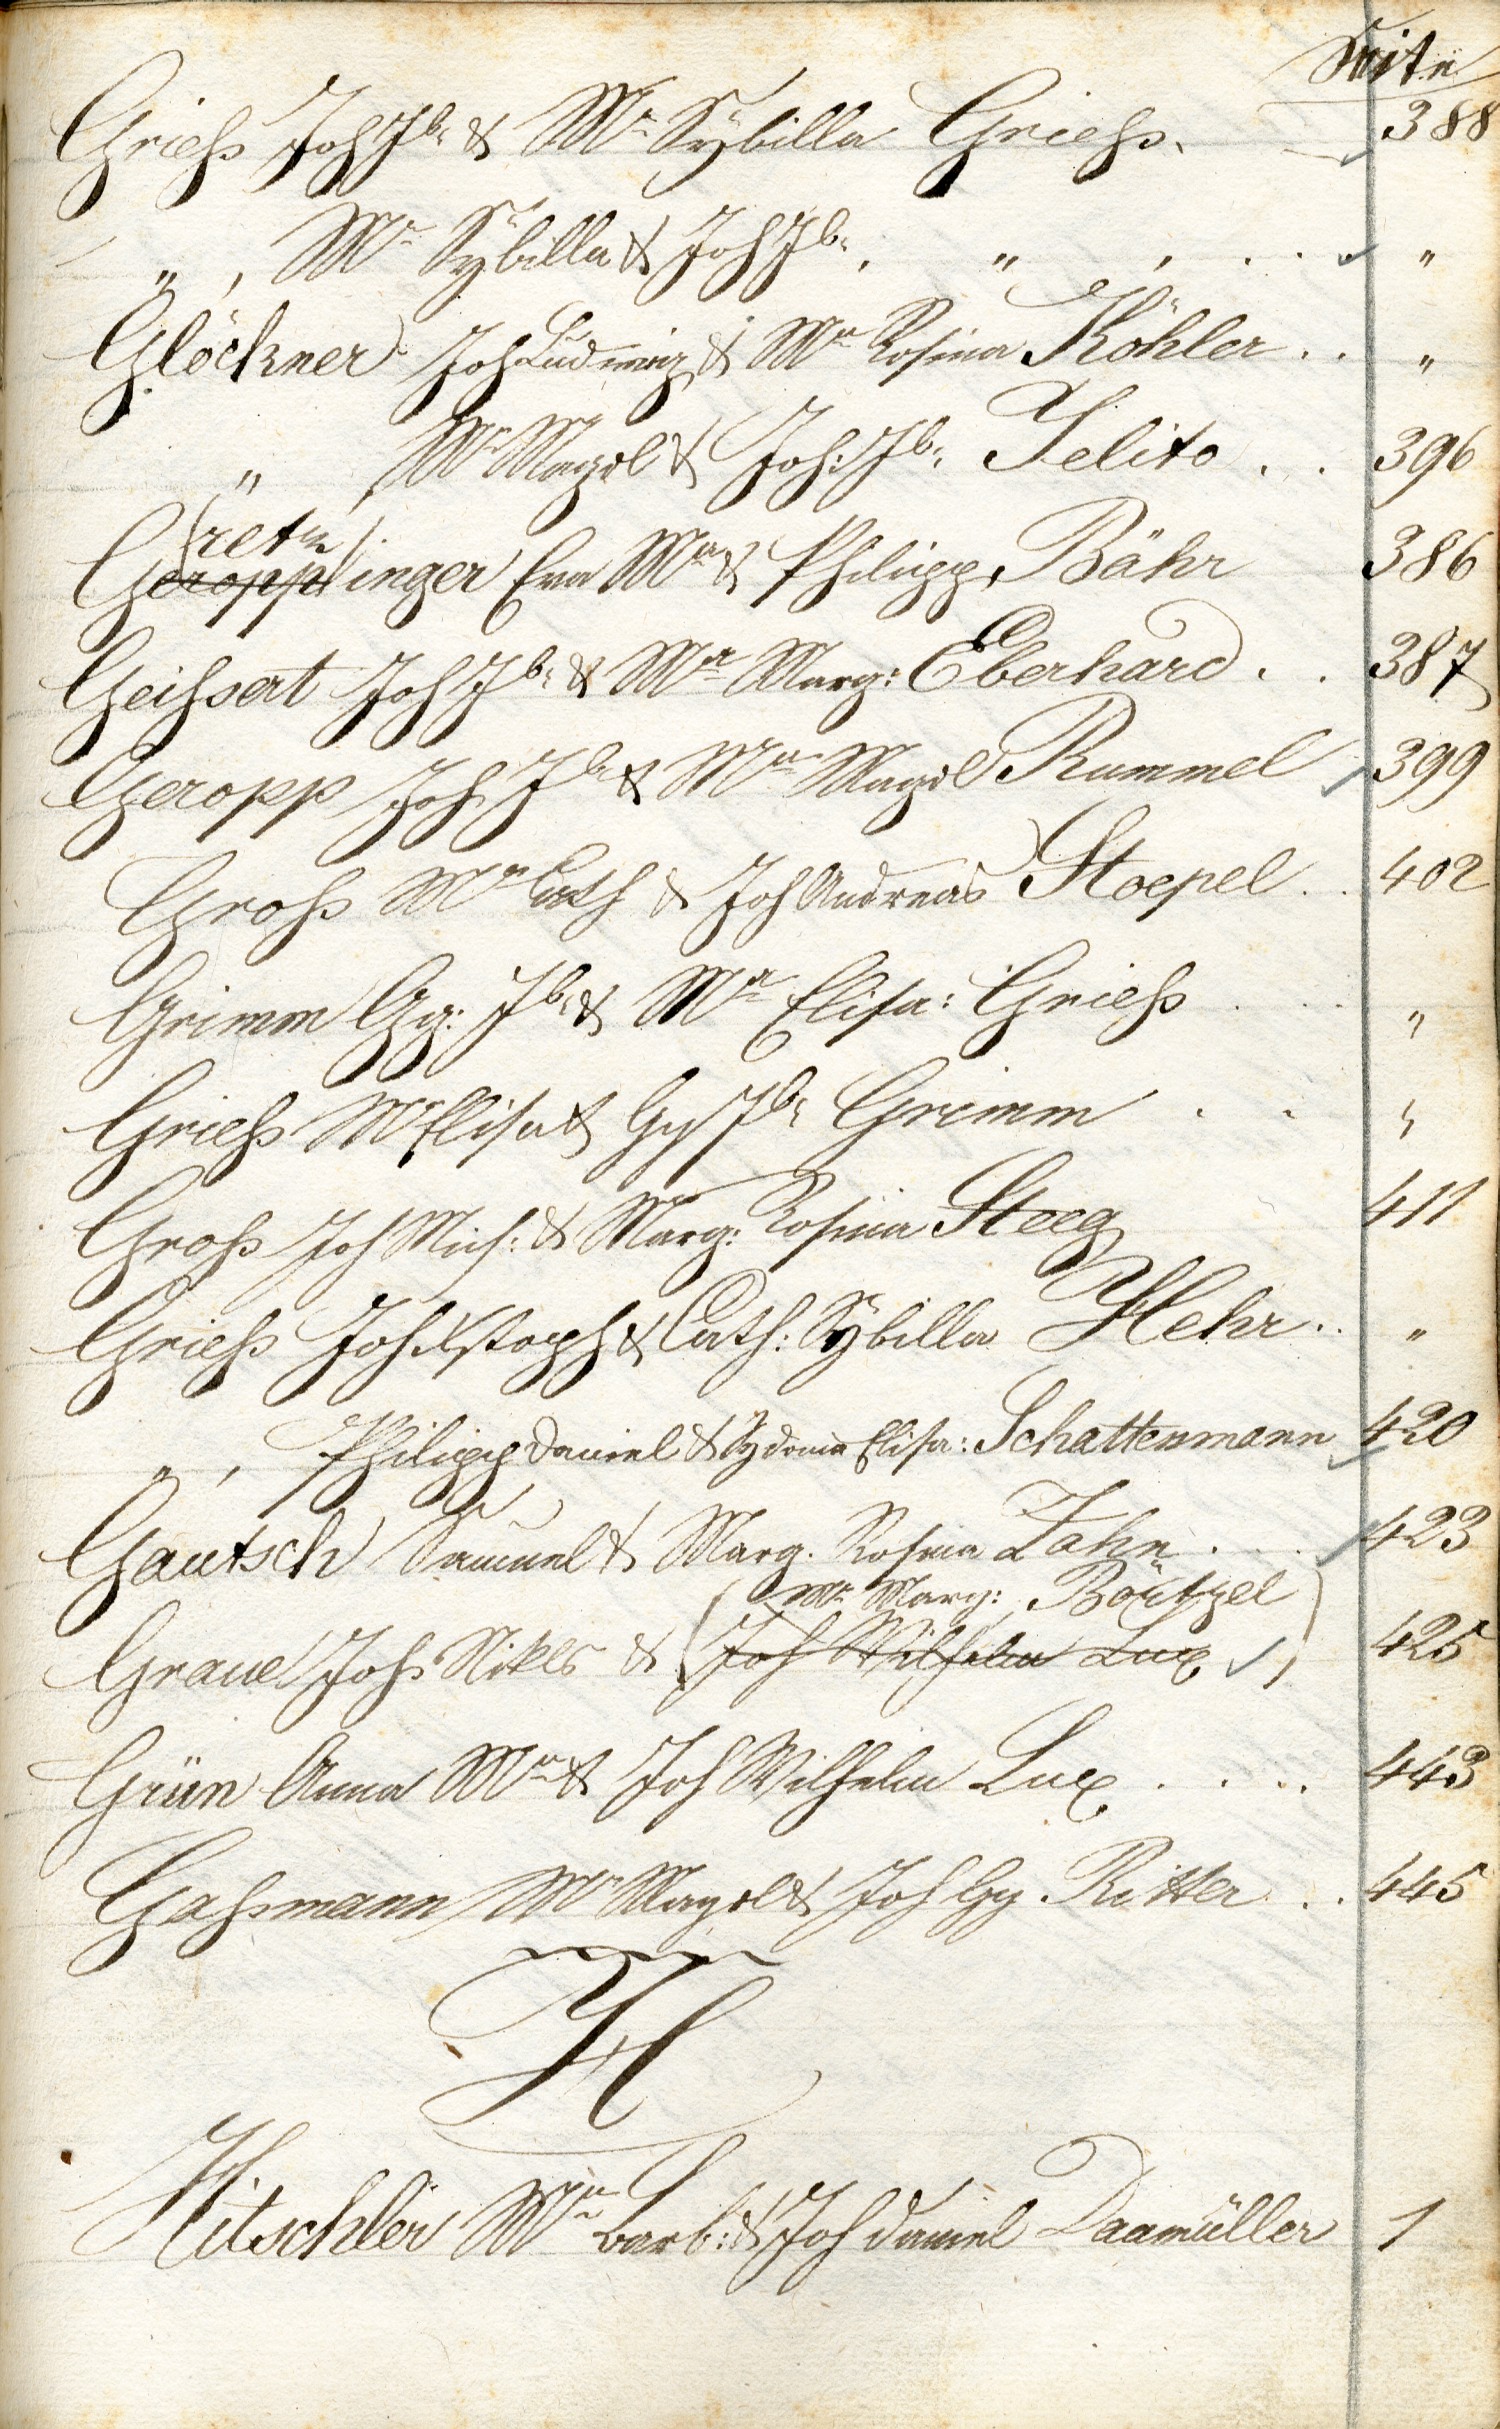 Seite
Grieß Joh Jb: & Ma Sÿbilla Grieß. 388
„ , Ma Sÿbilla & Joh Jb: , „ , . . . „
Glöckner Joh Ludwig & Ma Rosina Köhler . . „
„ , Ma Magdl & Joh: Jb: Jelito . . 396
(retz)
Geropplinger Eva Ma & Philipp Bähr 386
Geißert Joh Jb: & Ma Marg: Eberhard . . 387
Geropp Joh Jb & Ma Magdl Rummel 399
Groß Ma Cath & Joh Andreas Stoepel . . 402
Grimm Gg: Jb: & Ma Elisa: Grieß . . . „
Grieß Ma Elisa & Gg Jb: Grimm . . „
Groß Joh Mich: & Marg: Rosina Steeg 411
Grieß Joh Xstoph & Cath: Sÿbilla Hehr . . „
„ , Philipp Daniel & Sydonia Elisa: Schattenmann 420
Gautsch Samuel & Marg. Rosina Zahn . . . 423
(Ma Marg: Böutzel
Graue Johs Nikls & Joh Wilhelm Lux) 425
Grün Anna Ma & Joh Wilhelm Lux . . . . 443
Gaßmann Ma Magdl & Joh Gg. Ritter . . 445
H
Hitschler Ma Barb: & Joh Daniel Daamüller 1